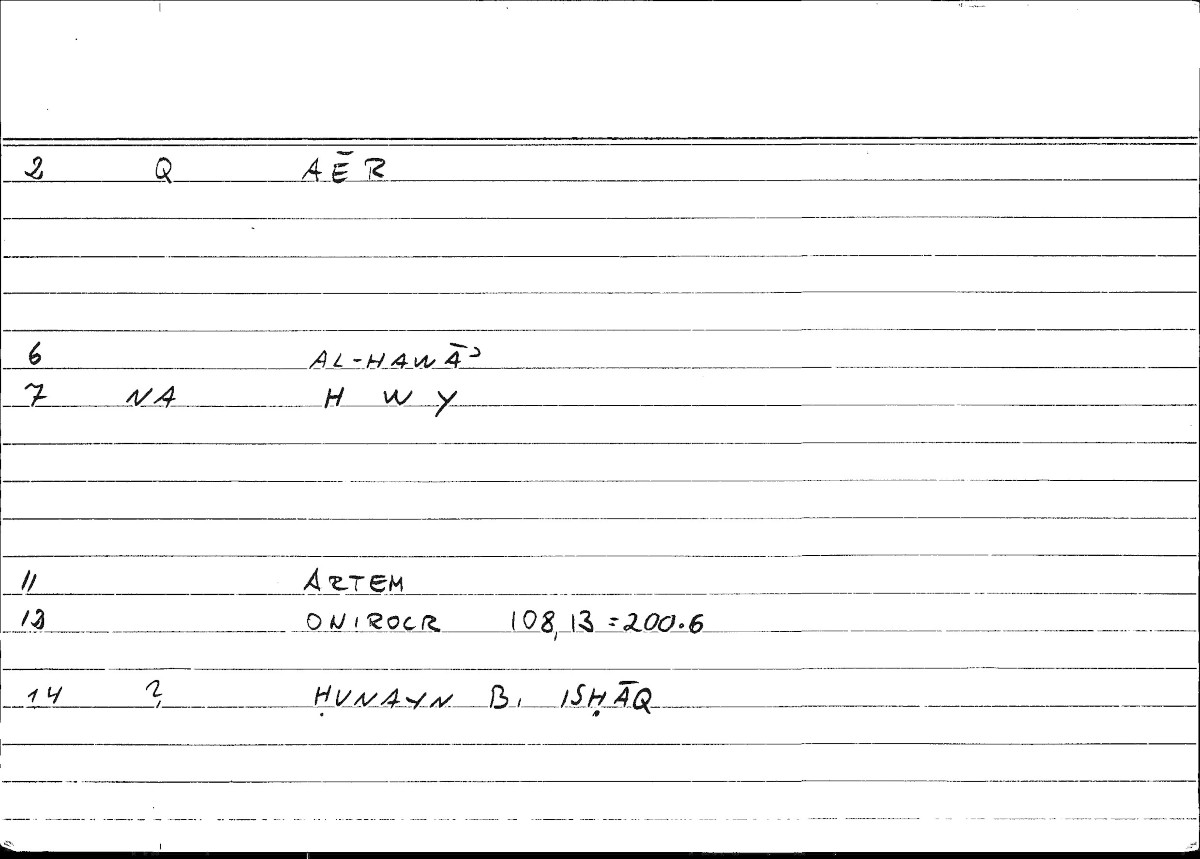 2 Q AĒR
6 AL-HAWĀʾ
7 NA H W Y
11 ARTEM
12 ONIROCR 108,13 = 200.6
14 ? ḤUNAYN B. ISḤĀQ